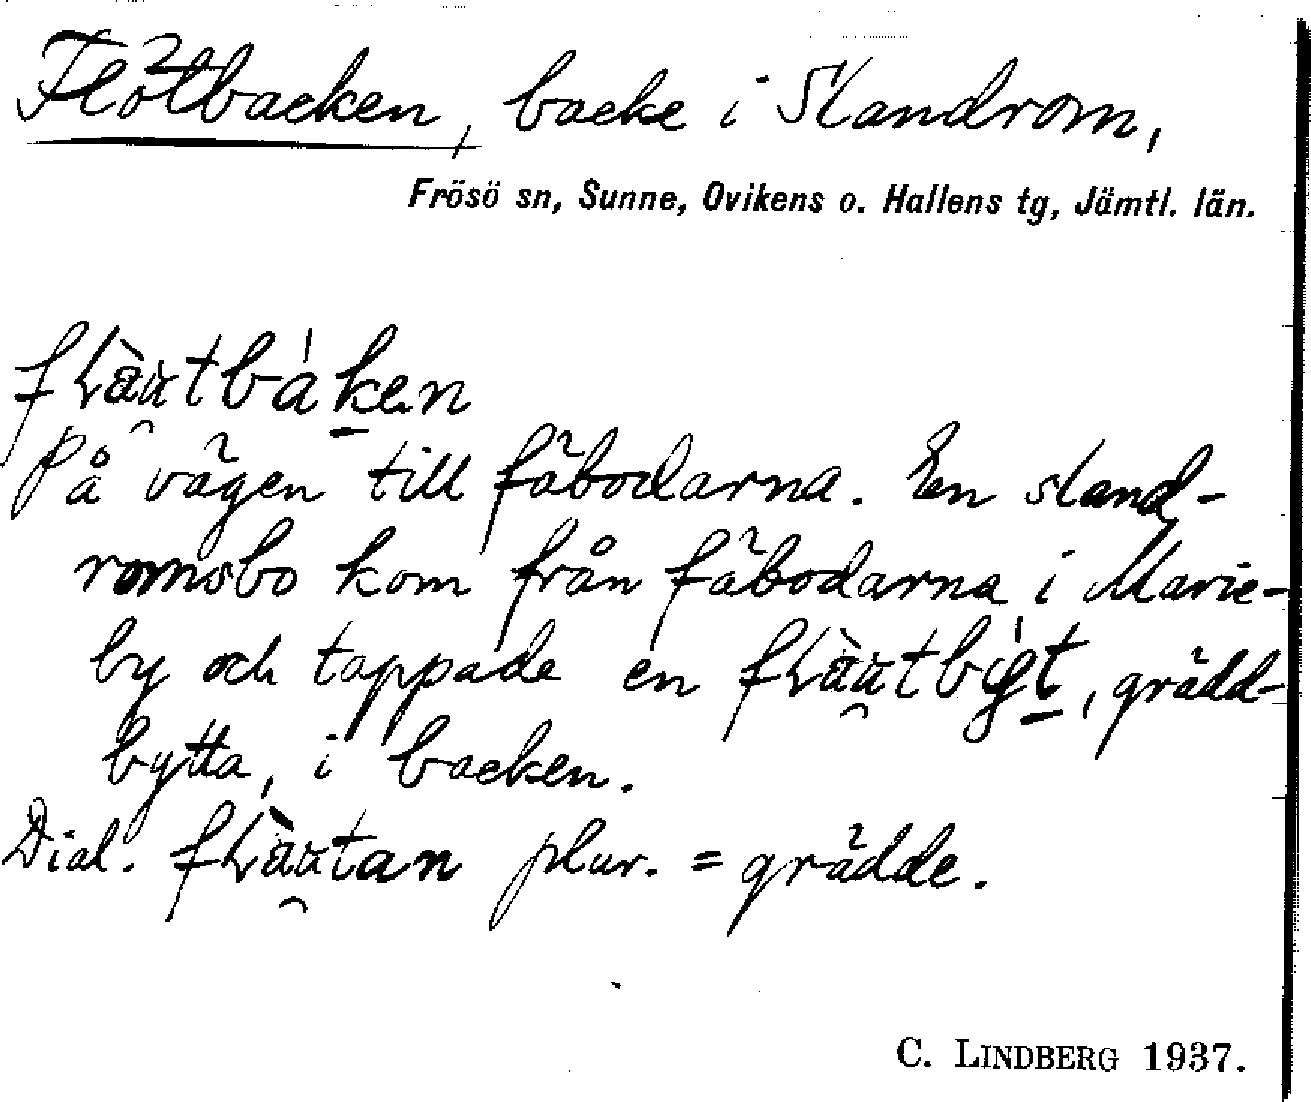 Flötbacken, backe i Slandrom,
Frösö sn, Sunne, Ovikens o. Hallens tg, Jämtl. län.
På vägen till fäbodarna. En sland-
romsbo kom från fäbodarna i Marie-
by och tappade en grädd-
bytta, i backen.
Dial. plur. = grädde.
C. LINDBERG 1937.